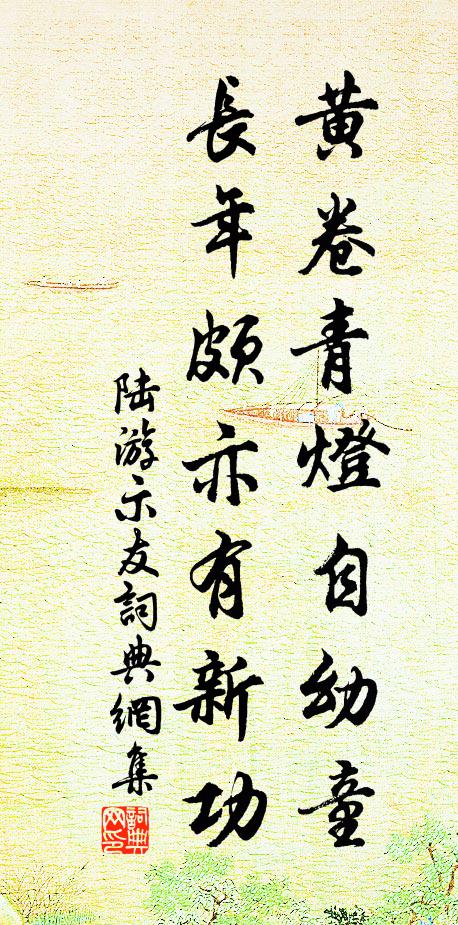 黄卷青燈自幼童
長年頗亦有新功
陸游示友詞典網集
詞典网印